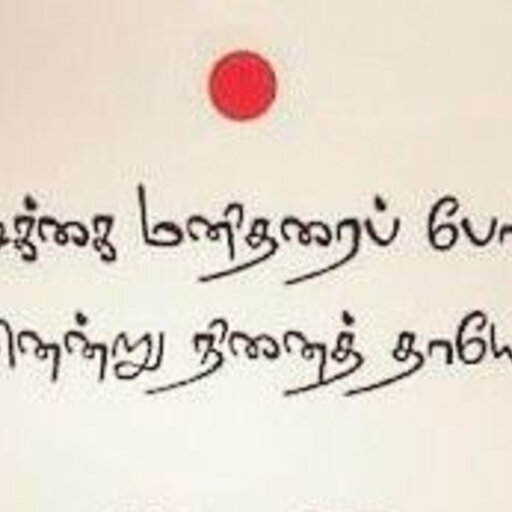 க்கை மனிதரைப் போ
னென்று நினைத் தாயே